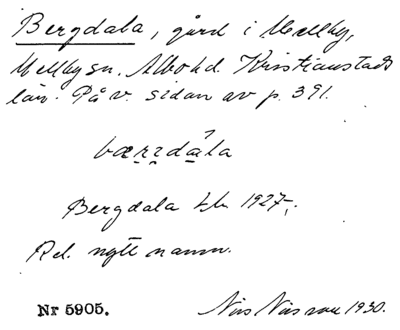 Bergdala, gård i Mellby,
Mellby sn. Albo hd. Kristianstads
län. På v. sidan av p. 391.
bærɪdåla
Bergdala 1927.
Rel. nytt namn.
Nr 5905. Nils Nilsson 1930.